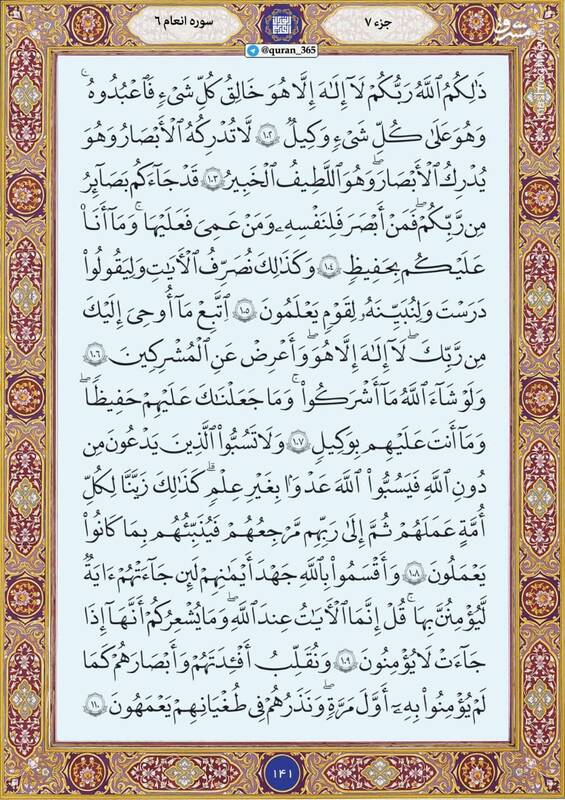 جزء ۷
سوره انعام ۶
مشرق
@quran_365
ذَٰلِكُمُ ٱللَّهُ رَبُّكُمْ لَآ إِلَٰهَ إِلَّا هُوَ خَٰلِقُ كُلِّ شَىْءٍ فَٱعْبُدُوهُ ۚ
وَهُوَ عَلَىٰ كُلِّ شَىْءٍ وَكِيلٌ ١٠٢ لَّا تُدْرِكُهُ ٱلْأَبْصَٰرُ وَهُوَ
يُدْرِكُ ٱلْأَبْصَٰرَ ۖ وَهُوَ ٱللَّطِيفُ ٱلْخَبِيرُ ١٠٣ قَدْ جَآءَكُم بَصَآئِرُ
مِن رَّبِّكُمْ ۖ فَمَنْ أَبْصَرَ فَلِنَفْسِهِۦ ۖ وَمَنْ عَمِىَ فَعَلَيْهَا ۚ وَمَآ أَنَا۠
عَلَيْكُم بِحَفِيظٍ ١٠٤ وَكَذَٰلِكَ نُصَرِّفُ ٱلْءَايَٰتِ وَلِيَقُولُوا۟
دَرَسْتَ وَلِنُبَيِّنَهُۥ لِقَوْمٍ يَعْلَمُونَ ١٠٥ ٱتَّبِعْ مَآ أُوحِىَ إِلَيْكَ
مِن رَّبِّكَ ۖ لَآ إِلَٰهَ إِلَّا هُوَ ۖ وَأَعْرِضْ عَنِ ٱلْمُشْرِكِينَ ١٠٦
وَلَوْ شَآءَ ٱللَّهُ مَآ أَشْرَكُوا۟ ۗ وَمَا جَعَلْنَٰكَ عَلَيْهِمْ حَفِيظًا ۖ
وَمَآ أَنتَ عَلَيْهِم بِوَكِيلٍ ١٠٧ وَلَا تَسُبُّوا۟ ٱلَّذِينَ يَدْعُونَ مِن
دُونِ ٱللَّهِ فَيَسُبُّوا۟ ٱللَّهَ عَدْوًۢا بِغَيْرِ عِلْمٍ ۗ كَذَٰلِكَ زَيَّنَّا لِكُلِّ
أُمَّةٍ عَمَلَهُمْ ثُمَّ إِلَىٰ رَبِّهِم مَّرْجِعُهُمْ فَيُنَبِّئُهُم بِمَا كَانُوا۟
يَعْمَلُونَ ١٠٨ وَأَقْسَمُوا۟ بِٱللَّهِ جَهْدَ أَيْمَٰنِهِمْ لَئِن جَآءَتْهُمْ ءَايَةٌ
لَّيُؤْمِنُنَّ بِهَا ۚ قُلْ إِنَّمَا ٱلْءَايَٰتُ عِندَ ٱللَّهِ ۖ وَمَا يُشْعِرُكُمْ أَنَّهَآ إِذَا
جَآءَتْ لَا يُؤْمِنُونَ ١٠٩ وَنُقَلِّبُ أَفْـِٔدَتَهُمْ وَأَبْصَٰرَهُمْ كَمَا
لَمْ يُؤْمِنُوا۟ بِهِۦٓ أَوَّلَ مَرَّةٍ وَنَذَرُهُمْ فِى طُغْيَٰنِهِمْ يَعْمَهُونَ ١١٠
۱۴۱